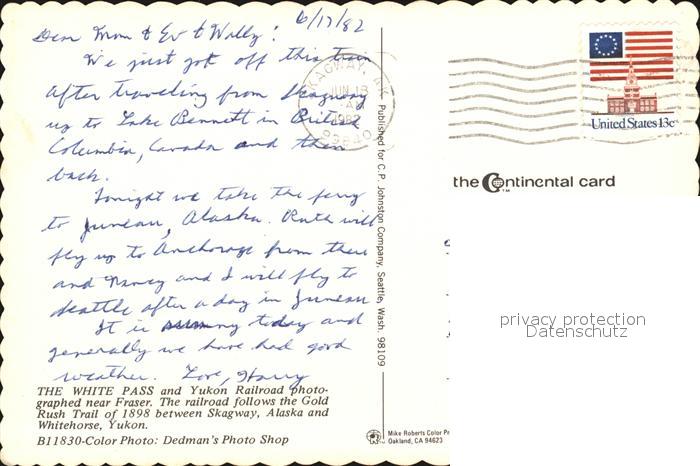 6/17/82
Dear Mom & Ev & Wally!
We just got off this train
after traveling from Skagway
up to Lake Bennett in British
Columbia, Canada and then
back.
Tonight we take the ferry
to Juneau, Alaska. Ruth will
fly up to Anchorage from there
and Nancy and I will fly to
Seattle after a day in Juneau
It is sunny today and
generally we have had good
weather. Love, Harry
THE WHITE PASS and Yukon Railroad photo-
graphed near Fraser. The railroad follows the Gold
Rush Trail of 1898 between Skagway, Alaska and
Whitehorse, Yukon.
B11830-Color Photo: Dedman's Photo Shop
SKAGWAY, AK
JUN 18
1982
99840
Published for C.P. Johnston Company, Seattle, Wash. 98109
Mike Roberts Color Pr
Oakland, CA 94623
United States 13c
the Continental card
TM
privacy protection
Datenschutz